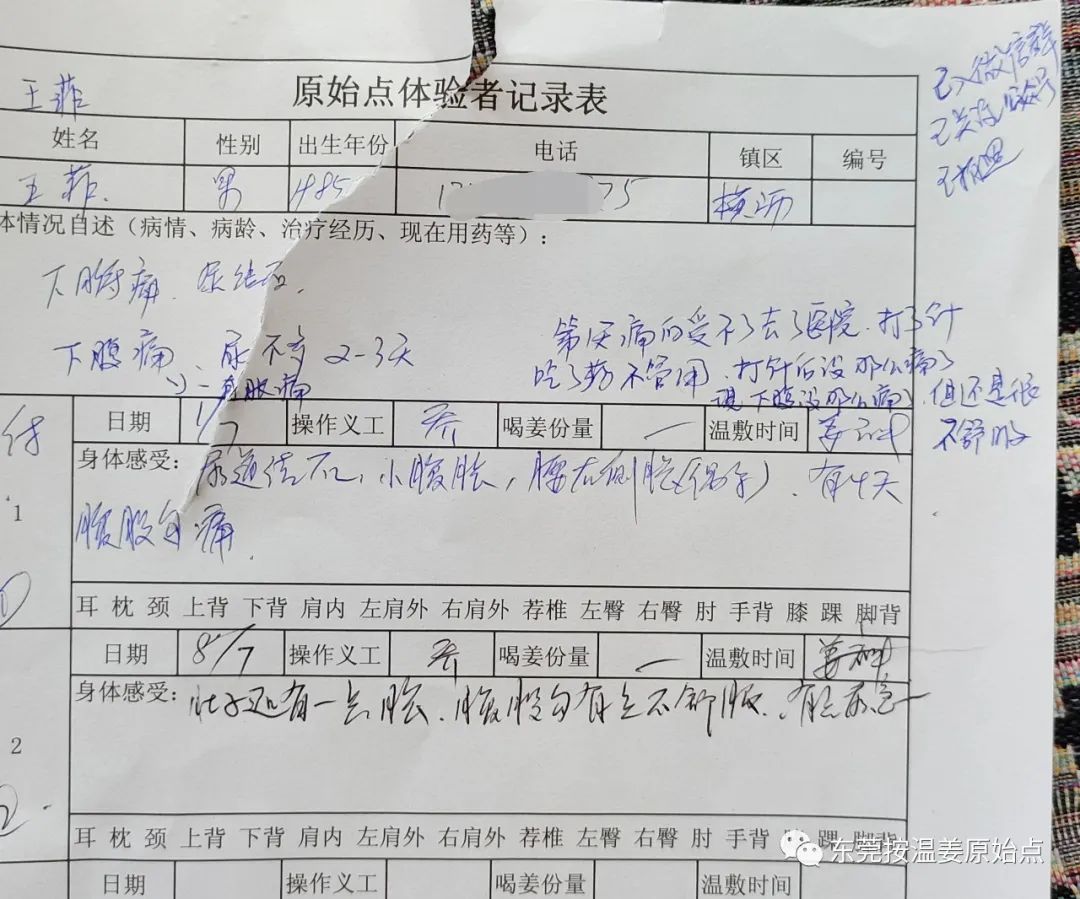 王菲
原始点体验者记录表
已入微信群
已关注公众号
姓名 性别 出生年份 电话 镇区 编号
王菲. 男 1985 75 横沥
本情况自述（病情、病龄、治疗经历、现在用药等）：
下腹痛. 尿结石.
下腹痛、尿不畅 2-3天
第一天痛的受不了去了医院.打了针
吃了药不管用.打针后没那么痛了
现下腹没那么痛).但还是很
不舒服
日期 1/7 操作义工 喝姜份量 一 温敷时间
1
身体感受： 尿道结石，小腹胀，腰右侧胀(偶尔). 有4天
腹股沟痛.
耳 枕 颈 上背 下背 肩内 左肩外 右肩外 荐椎 左臀 右臀 肘 手背 膝 踝 脚背
日期 8/7 操作义工 喝姜份量 一 温敷时间
2
身体感受： 肚子还有一点胀.腹股沟有点不舒服.有点尿急
耳 枕 颈 上背 下背 肩内 左肩外 右肩外 荐椎 左臀 右臀 肘 手背 踝 脚背
日期 操作义工 喝姜份量 温敷时间
东莞按温姜原始点